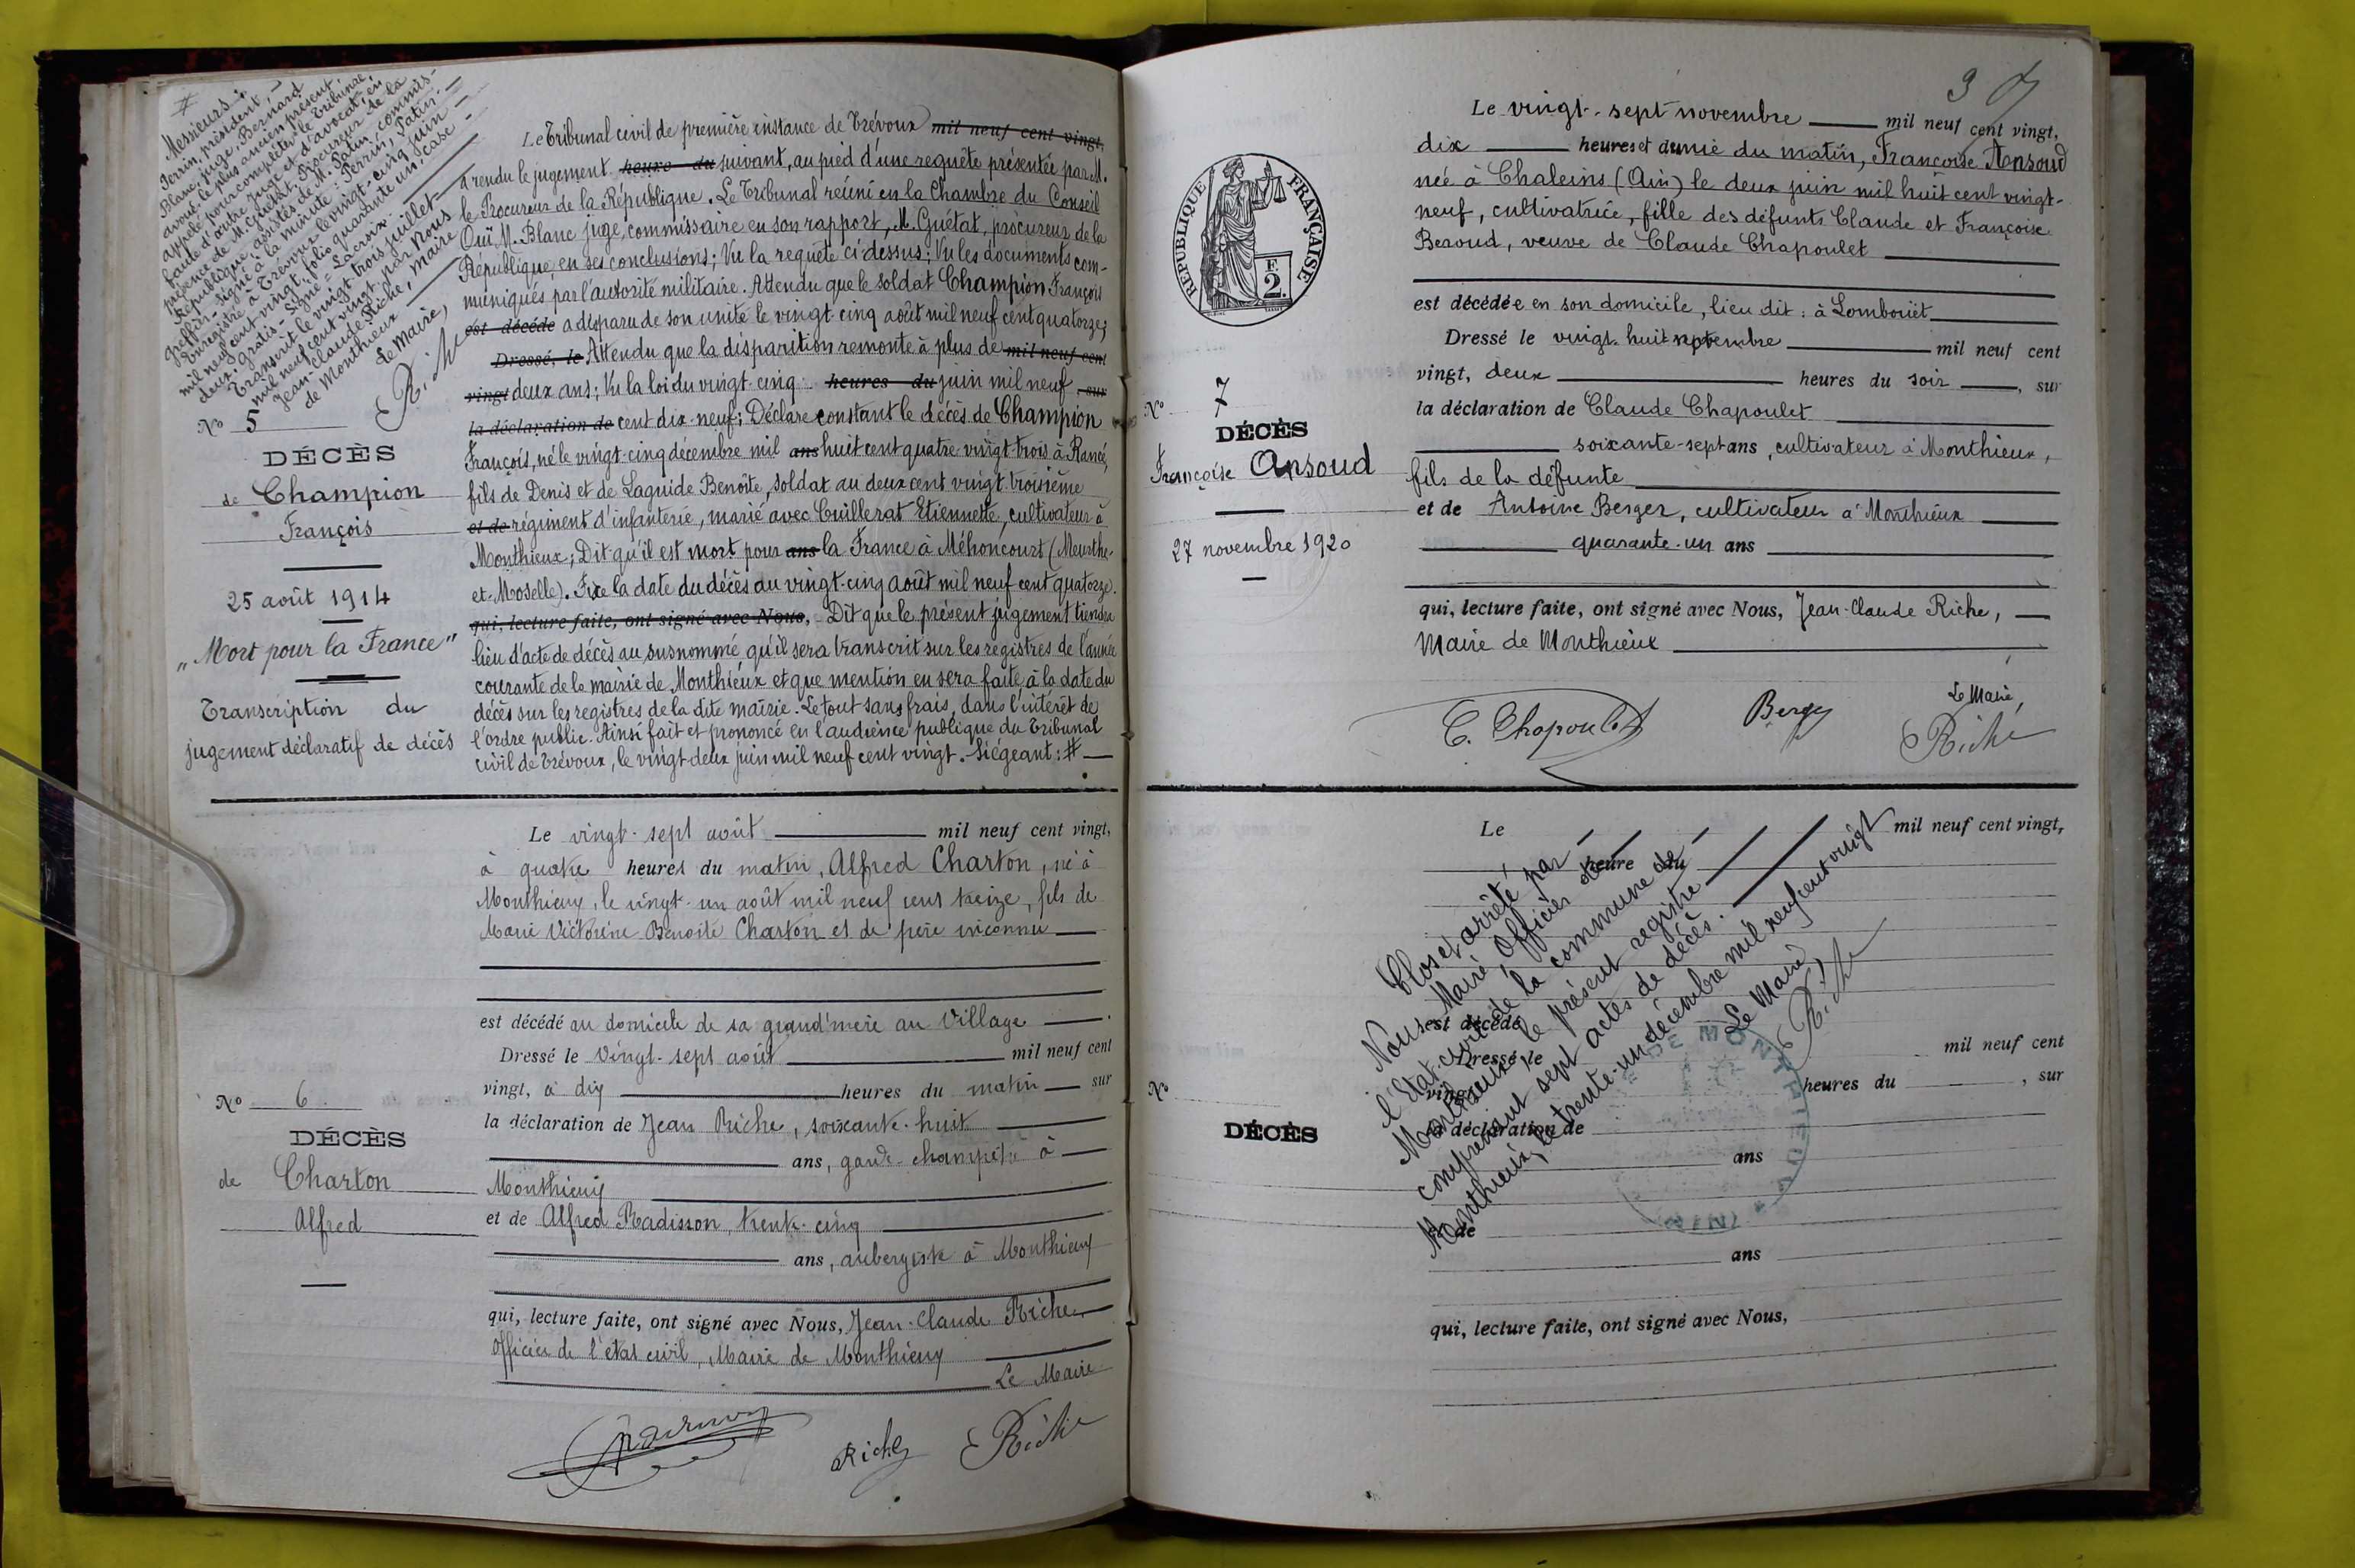 #
Messieurs :
Perrin, président,
Blanc, juge, Bernard
avoué le plus ancien présent,
appelé pour compléter le Tribunal,
faute d'autre juge et d'avocat, en
présence de M. Guétat, Procureur de la
République, assistés de M. Patin, commis-
greffier. Signé à la minute : Perrin, Patin.
Enregistré à Trévoux le vingt-cinq juin
mil neuf cent vingt, folio quarante un, case
deux. Gratis. Signé = Lacroix.
Transcrit le vingt trois juillet
mil neuf cent vingt, par Nous
Jean-Claude Riche, maire
de Monthieux
Le Maire,
Riche
N° 5
DÉCÈS
de Champion
François
25 août 1914
"Mort pour la France"
Transcription du
jugement déclaratif de décès
Le Tribunal civil de première instance de Trévoux mil neuf cent vingt,
a rendu le jugement heure du suivant, au pied d'une requête présentée par M.
le Procureur de la République. Le Tribunal réuni en la Chambre du Conseil
Ouï M. Blanc juge, commissaire en son rapport, M. Guétat, procureur de la
République, en ses conclusions; Vu la requête ci-dessus; Vu les documents com-
muniqués par l'autorité militaire. Attendu que le soldat Champion François
est décédé a disparu de son unité le vingt-cinq août mil neuf cent quatorze;
Dressé, le Attendu que la disparition remonte à plus de mil neuf cent
vingt deux ans; Vu la loi du vingt-cinq heures du juin mil neuf , sur
la déclaration de cent dix-neuf; Déclare constant le décès de Champion
François, né le vingt-cinq décembre mil ans huit cent quatre-vingt-trois à Rancé,
fils de Denis et de Laguide Benoîte, soldat au deux cent vingt troisième
et de régiment d'infanterie, marié avec Cuillerat Etiennette, cultivateur à
Monthieux; Dit qu'il est mort pour ans la France à Méhoncourt (Meurthe-
et-Moselle). Fixe la date du décès au vingt-cinq août mil neuf cent quatorze.
qui, lecture faite, ont signé avec Nous, - Dit que le présent jugement tiendra
lieu d'acte de décès au susnommé, qu'il sera transcrit sur les registres de l'année
courante de la mairie de Monthieux et que mention en sera faite à la date du
décès sur les registres de la dite mairie. Le tout sans frais, dans l'intérêt de
l'ordre public. Ainsi fait et prononcé en l'audience publique du Tribunal
civil de Trévoux, le vingt-deux juin mil neuf cent vingt. Siégeant : #
N° 6
DÉCÈS
de Charton
Alfred
Le vingt-sept août mil neuf cent vingt,
à quatre heures du matin, Alfred Charton, né à
Monthieux, le vingt-un août mil neuf cent treize, fils de
Marie Victorine Benoite Charton et de père inconnu
est décédé au domicile de sa grand'mère au Village
Dressé le vingt-sept août mil neuf cent
vingt, à dix heures du matin sur
la déclaration de Jean Riche, soixante-huit
ans, garde-champêtre à
Monthieux
et de Alfred Radisson, trente-cinq
ans, aubergiste à Monthieux
qui, lecture faite, ont signé avec Nous, Jean-Claude Riche,
officier de l'état civil, Maire de Monthieux
Le Maire
Riche Riche
3
REPUBLIQUE FRANÇAISE
F.
2.
N° 7
DÉCÈS
Françoise Ansoud
27 novembre 1920
Le vingt-sept novembre mil neuf cent vingt,
dix heures et demie du matin, Françoise Ansoud
née à Chaleins (Ain) le deux juin mil huit cent vingt-
neuf, cultivatrice, fille des défunts Claude et Françoise
Beroud, veuve de Claude Chapoulet
est décédée en son domicile, lieu dit : à Lombouët
Dressé le vingt-huit novembre mil neuf cent
vingt, deux heures du soir , sur
la déclaration de Claude Chapoulet
soixante-sept ans, cultivateur à Monthieux,
fils de la défunte
et de Antoine Berger, cultivateur à Monthieux
quarante-un ans
qui, lecture faite, ont signé avec Nous, Jean-Claude Riche,
Maire de Monthieux
Le Maire,
C. Chapoulet Berger Riche
N°
DÉCÈS
Le mil neuf cent vingt,
heure du
est décédé
Dressé, le mil neuf cent
vingt heures du , sur
la déclaration de
ans
et de
ans
qui, lecture faite, ont signé avec Nous,
Clos et arrêté par
Nous, Maire, Officier de
l'Etat-civil de la commune de
Monthieux, le présent registre
comprenant sept actes de décès.
Monthieux, le trente-un décembre mil neuf cent vingt
Le Maire,
Riche
DE MONTHIEUX
(AIN)